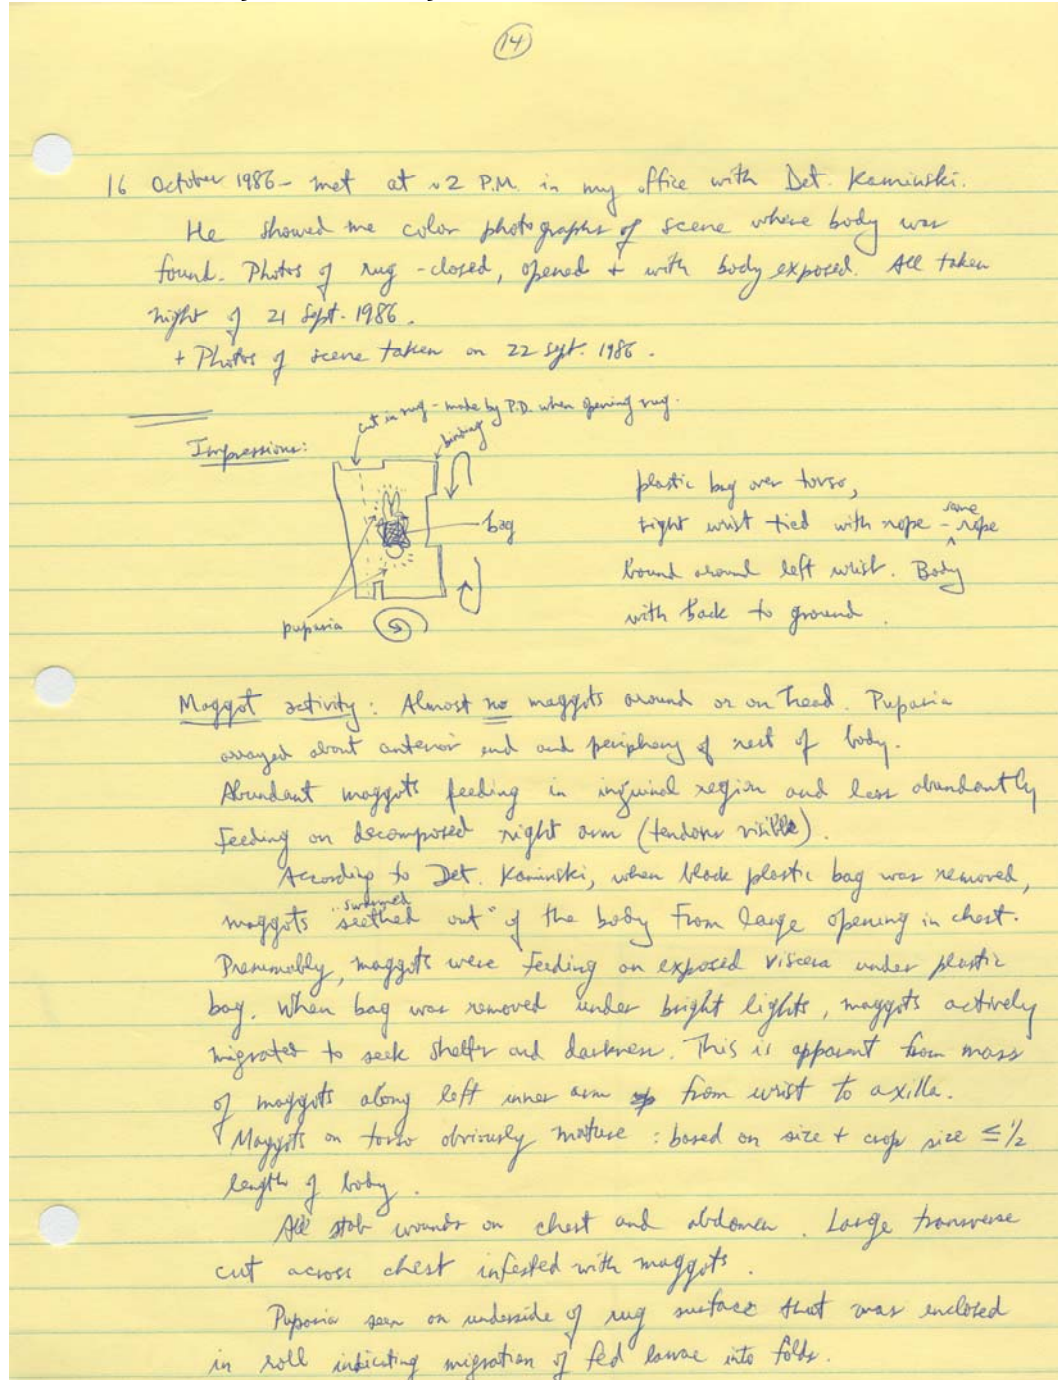 14
16 October 1986 - met at ~2 P.M. in my office with Det. Kaminski.
He showed me color photographs of scene where body was
found. Photos of rug - closed, opened + with body exposed. All taken
night of 21 Sept. 1986.
+ Photos of scene taken on 22 Sept. 1986.
cut in rug - made by P.D. when opening rug.
binding
Impressions:
bag
puparia
plastic bag over torso,
right wrist tied with rope - same rope
bound around left wrist. Body
with back to ground.
Maggot activity: Almost no maggots around or on head. Puparia
arrayed about anterior end and periphery of rest of body.
Abundant maggots feeding in inguinal region and less abundantly
feeding on decomposed right arm (tendons visible).
According to Det. Kaminski, when black plastic bag was removed,
maggots "swarmed seethed out" of the body from large opening in chest.
Presumably, maggots were feeding on exposed viscera under plastic
bag. When bag was removed under bright lights, maggots actively
migrated to seek shelter and darkness. This is apparent from mass
of maggots along left inner arm from wrist to axilla.
Maggots on torso obviously mature : based on size + crop size ≤ 1/2
length of body.
All stab wounds on chest and abdomen. Large transverse
cut across chest infested with maggots.
Puparia seen on underside of rug surface that was enclosed
in roll indicating migration of fed larvae into folds.